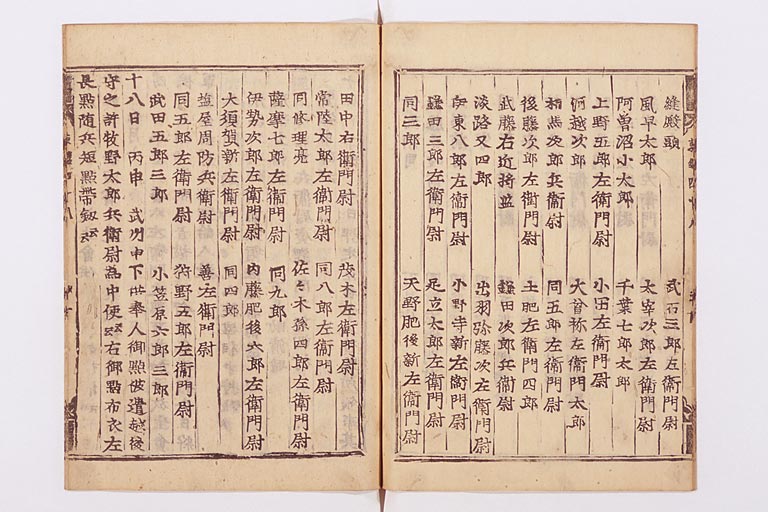 縫殿頭 武石三郎左衛門尉
風早太郎左衛門尉 太宰次郎左衛門尉
阿曽沼小太郎 千葉七郎太郎
上野五郎左衛門尉 小田左衛門尉
河越次郎 大曽祢左衛門太郎
相馬次郎兵衛尉 同五郎左衛門尉
後藤次郎左衛門尉 土肥左衛門四郎
武藤右近将監 鎌田次郎兵衛尉
淡路又四郎 出羽弥藤次左衛門尉
伊東八郎左衛門尉 小野寺新左衛門尉
鎌田三郎左衛門尉 足立太郎左衛門尉
同三郎 天野肥後新左衛門尉
田中右衛門尉 茂木左衛門尉
常陸太郎左衛門尉 同八郎左衛門尉
同修理亮 佐々木孫四郎左衛門尉
薩摩七郎左衛門尉 同九郎
伊勢次郎左衛門尉 内藤肥後六郎左衛門尉
大須賀新左衛門尉 同四郎
塩屋周防兵衛尉 善左衛門尉
同五郎左衛門尉 狩野五郎左衛門尉
武田五郎三郎 小笠原六郎三郎
十八日 丙申 武州申下供奉人御點被遣越後
守之許牧野太郎兵衛尉為中使云云右御點布衣左
長點随兵短點帯剱云云